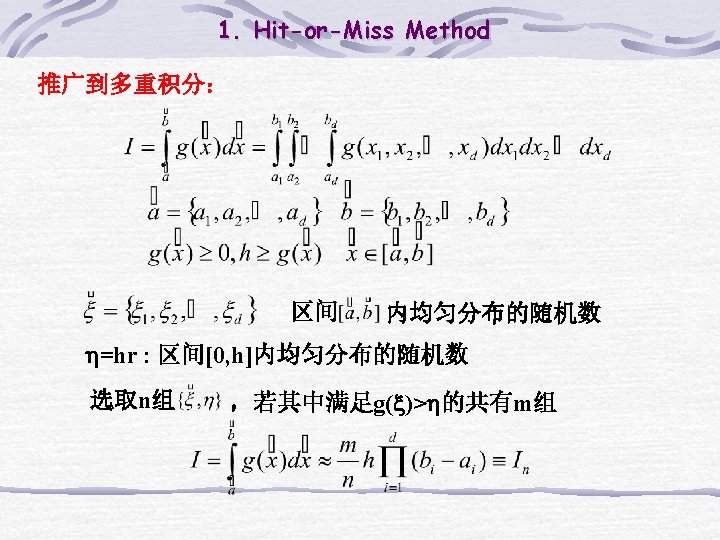 1. Hit-or-Miss Method
推广到多重积分：
I = ∫_a^b g(x)dx = ∫_{a1}^{b1} ∫_{a2}^{b2} ▯ ∫_{ad}^{bd} g(x1, x2, ▯ , xd)dx1dx2 ▯ dxd
a = {a1, a2, ▯ , ad} b = {b1, b2, ▯ , bd}
g(x) ≥ 0, h ≥ g(x) x ∈ [a, b]
ξ = {ξ1, ξ2, ▯ , ξd} 区间[a, b] 内均匀分布的随机数
η=hr : 区间[0, h]内均匀分布的随机数
选取n组{ξ, η} ，若其中满足g(ξ)>η的共有m组
I = ∫_a^b g(x)dx ≈ m/n h ∏_{i=1}^d (bi − ai) ≡ In